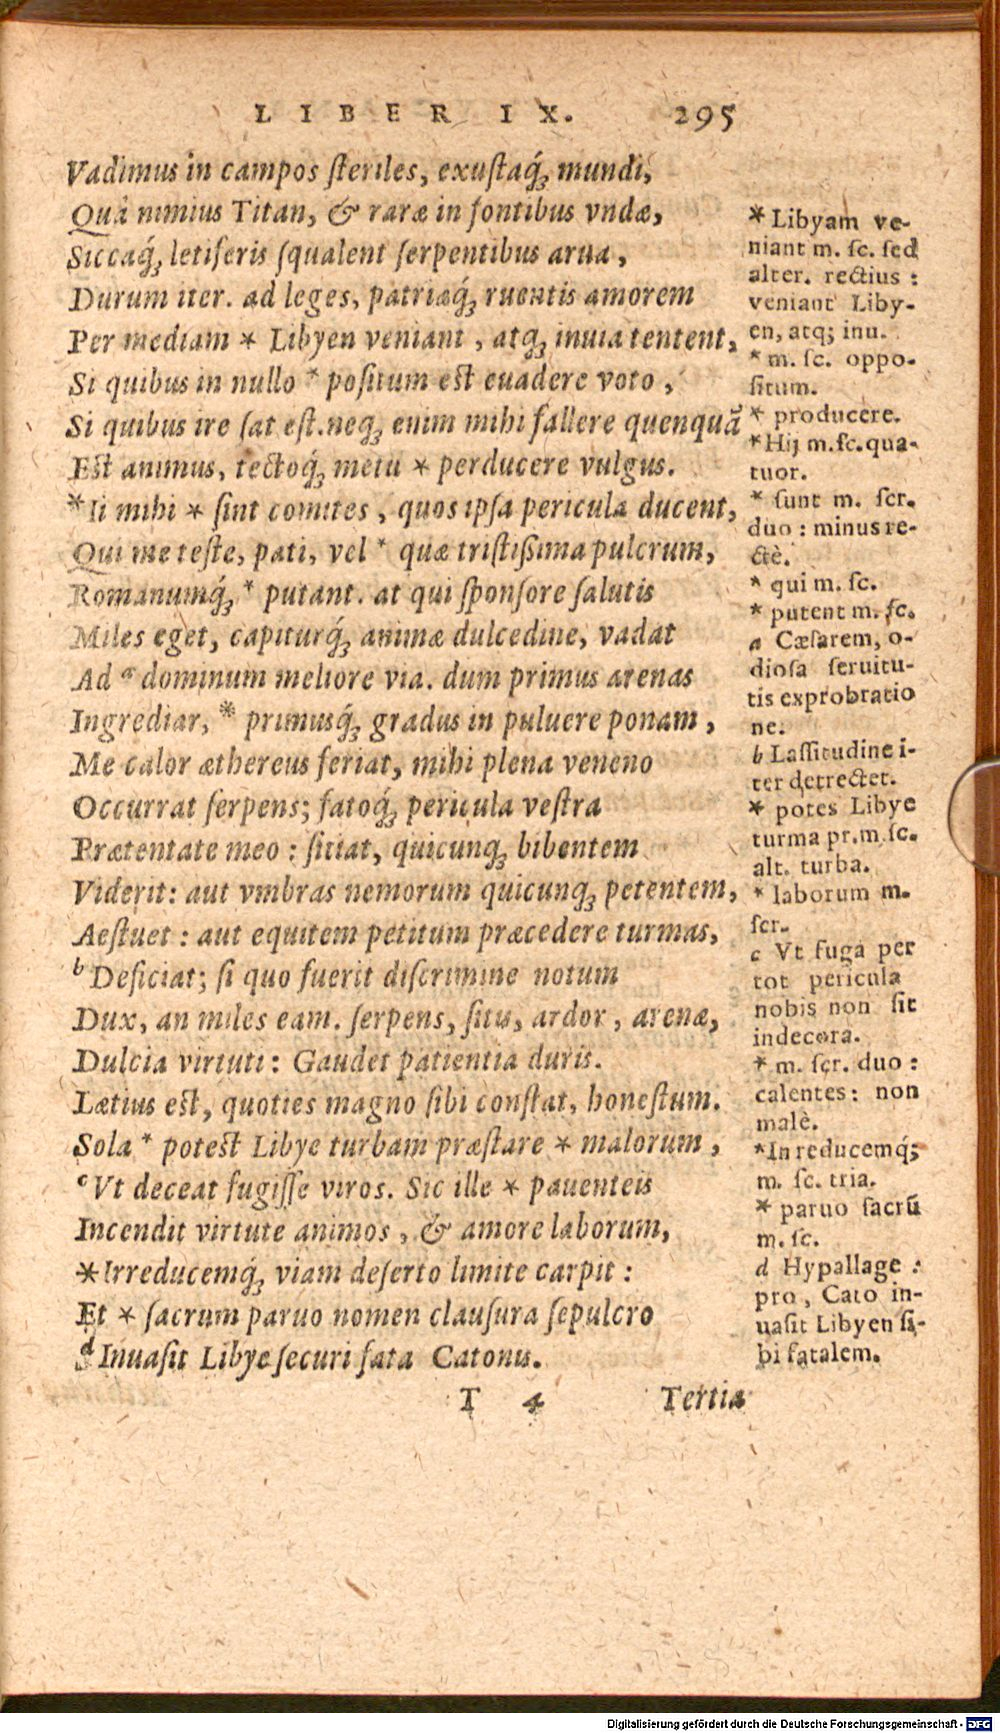 LIBER IX. 295
Vadimus in campos ſteriles, exuſtaq́; mundi,
Quà nimius Titan, & raræ in fontibus vndæ,
Siccaq́; letiferis ſqualent ſerpentibus arua,
Durum iter. ad leges, patriaq́; ruentis amorem
Per mediam * Libyen veniant, atq; inuia tentent,
Si quibus in nullo * poſitum eſt euadere voto,
Si quibus ire ſat eſt. neq; enim mihi fallere quenquã
Eſt animus, tectoq́; metu * perducere vulgus.
*Ii mihi * ſint comites, quos ipſa pericula ducent,
Qui me teſte, pati, vel * quæ triſtißima pulcrum,
Romanumq́; * putant. at qui ſponſore ſalutis
Miles eget, capiturq́; animæ dulcedine, vadat
Ad a dominum meliore via. dum primus arenas
Ingrediar, * primusq́; gradus in puluere ponam,
Me calor æthereus feriat, mihi plena veneno
Occurrat ſerpens; fatoq́; pericula veſtra
Prætentate meo: ſitiat, quicunq; bibentem
Viderit: aut vmbras nemorum quicunq; petentem,
Aeſtuet: aut equitem petitum præcedere turmas,
b Deficiat; ſi quo fuerit diſcrimine notum
Dux, an miles eam. ſerpens, ſitis, ardor, arenæ,
Dulcia virtuti: Gaudet patientia duris.
Lætius eſt, quoties magno ſibi conſtat, honeſtum.
Sola * poteſt Libye turbam præſtare * malorum,
c Vt deceat fugiſſe viros. Sic ille * pauenteis
Incendit virtute animos, & amore laborum,
*Irreducemq́; viam deſerto limite carpit:
Et * ſacrum paruo nomen clauſura ſepulcro
d Inuaſit Libye ſecuri fata Catonis.
T 4 Tertia
* Libyam ve-
niant m. ſc. ſed
alter. rectius:
veniant Liby-
en, atq; inu.
* m. ſc. oppo-
ſitum.
* producere.
*Hij m. ſc. qua-
tuor.
* ſunt m. ſcr.
duo: minus re-
ctè.
* qui m. ſc.
* putent m. ſc.
a Cæſarem, o-
dioſa ſeruitu-
tis exprobratio
ne.
b Laſſitudine i-
ter detrectet.
* potes Libye
turma pr. m. ſc.
alt. turba.
* laborum m.
ſcr.
c Vt fuga per
tot pericula
nobis non ſit
indecora.
* m. ſcr. duo:
calentes: non
malè.
*In reducemq́;
m. ſc. tria.
* paruo ſacrũ
m. ſc.
d Hypallage:
pro, Cato in-
uaſit Libyen ſi-
bi fatalem.
Digitalisierung gefördert durch die Deutsche Forschungsgemeinschaft - DFG